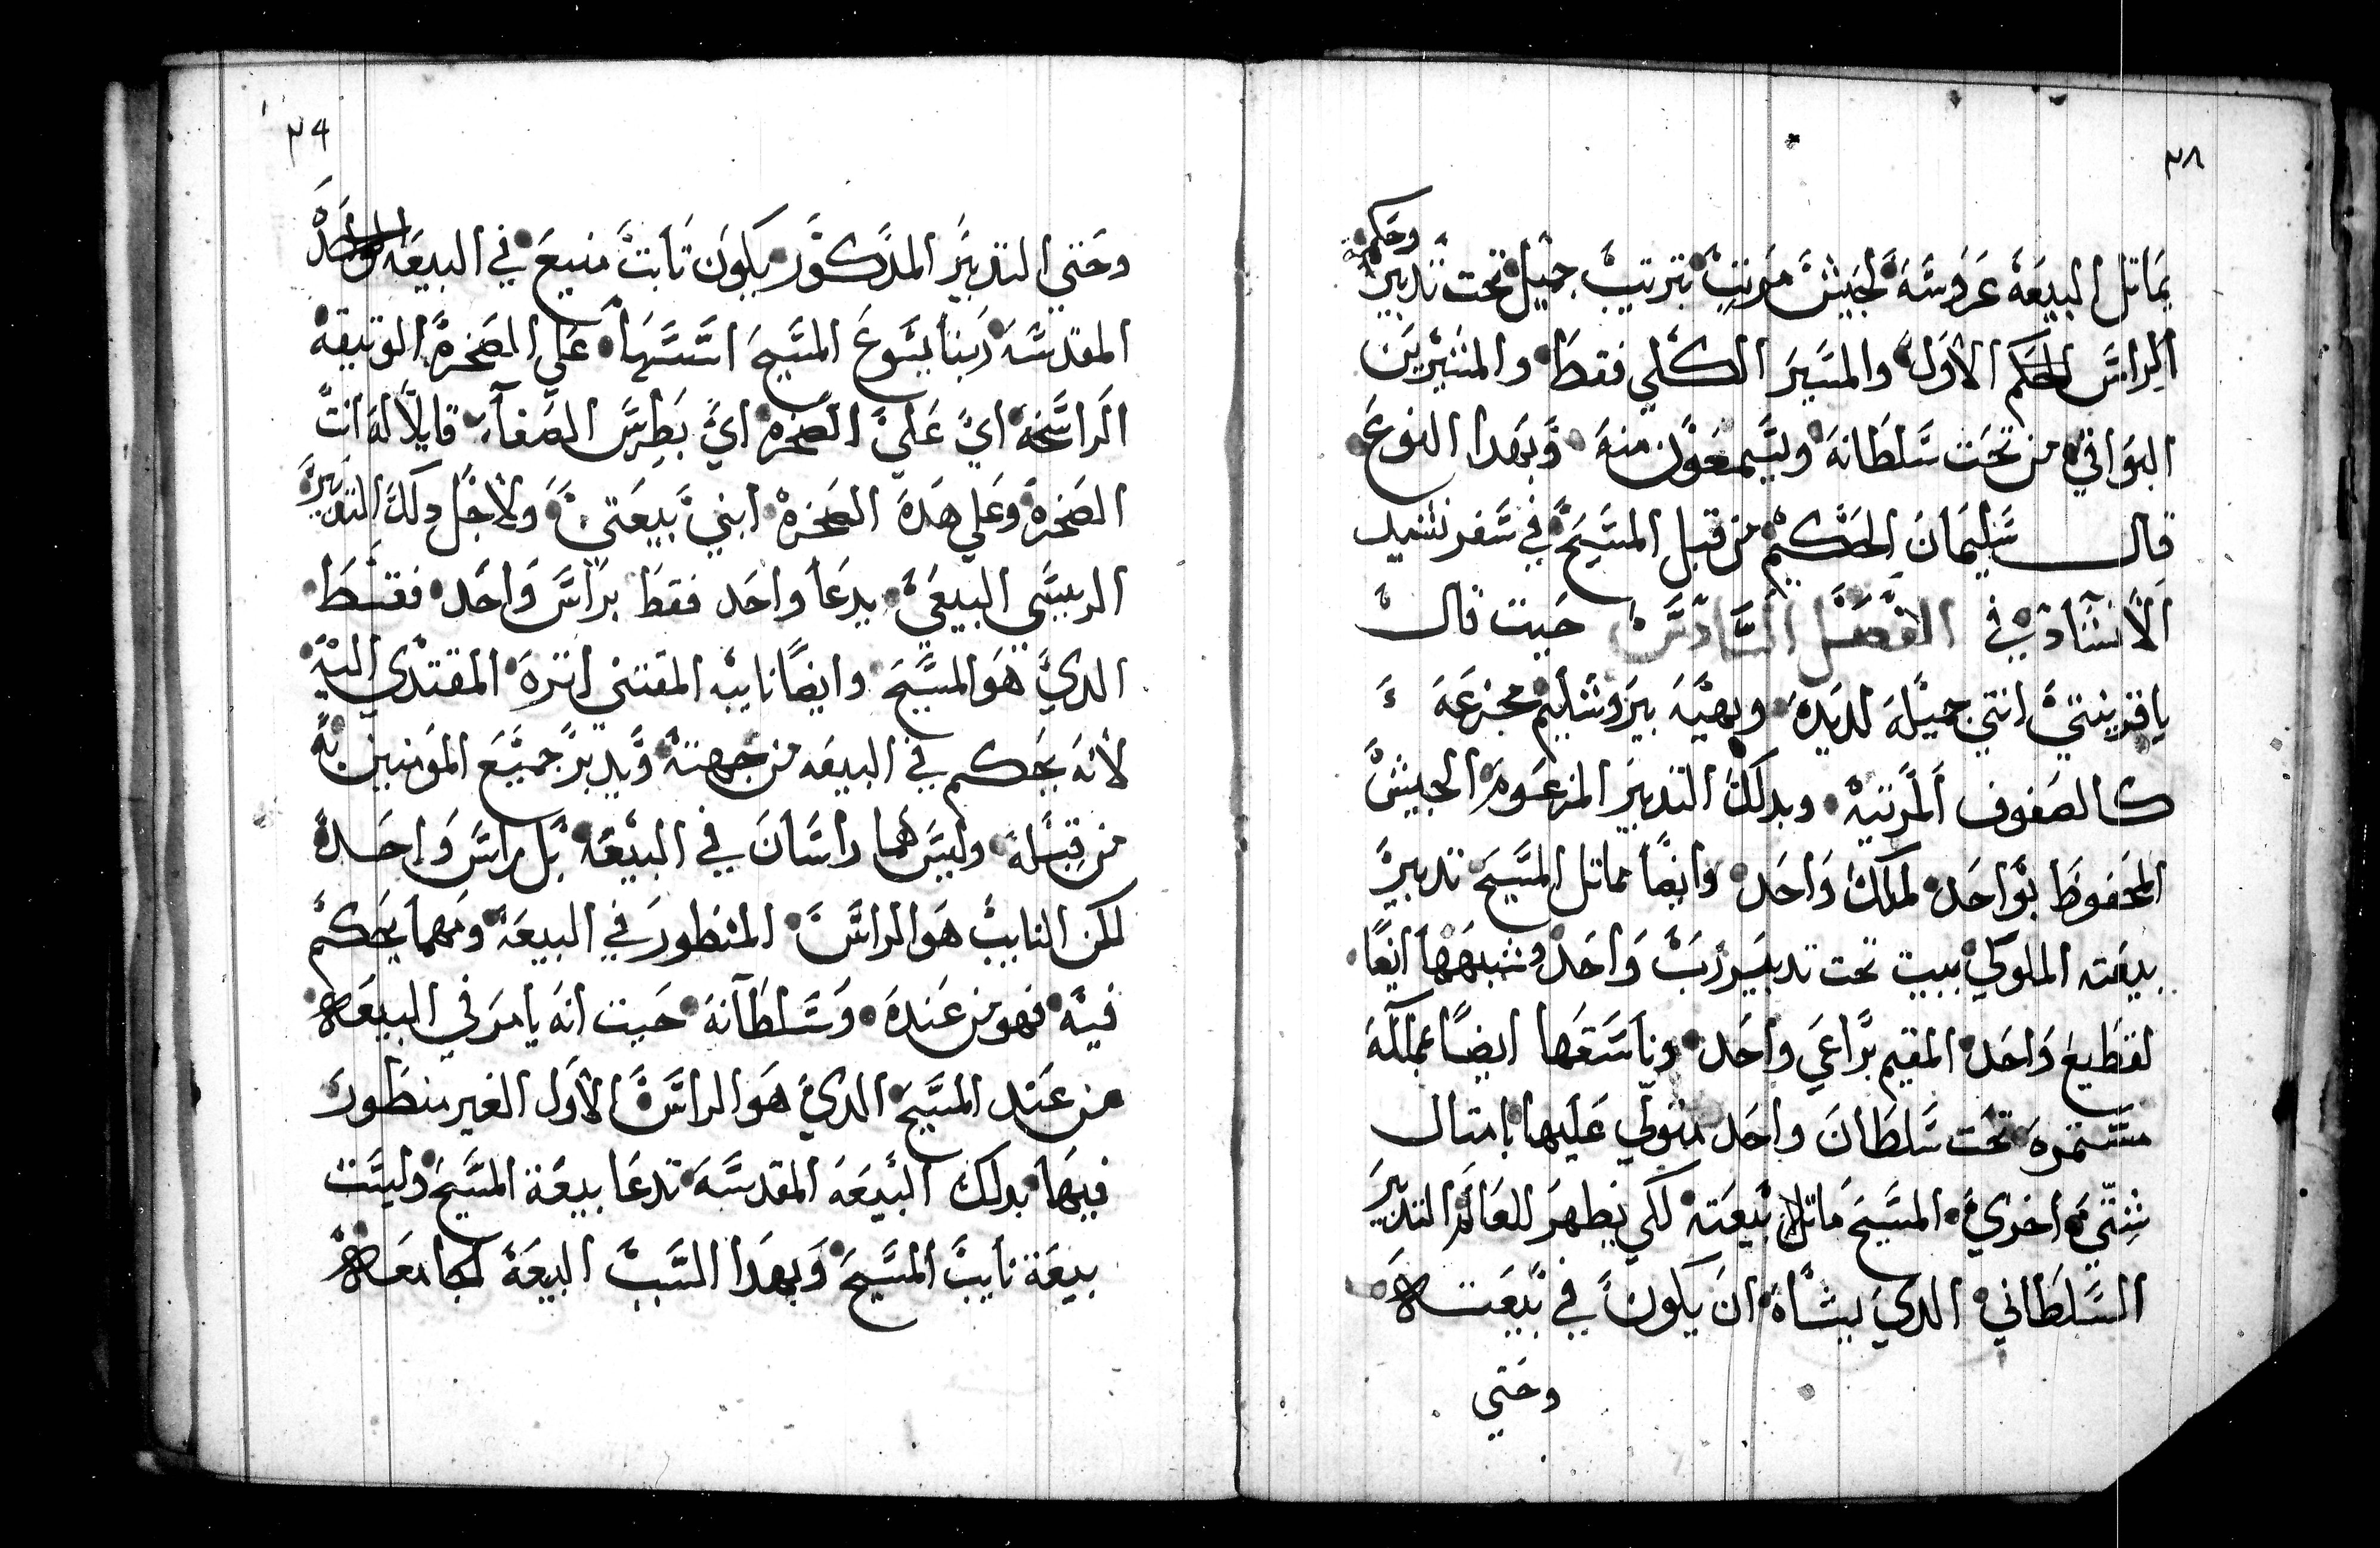 ٣٨
وحكم
يماتل البيعه عروسه لجيش مرتب بترتيب جميل تحت تدبير
الراس الحكم الاول والمسير الكلي فقط والمتسيرين
البواقي من تحت سلطانه ويسمعون منه وبهدا النوع
قال سليمان الحكيم من قبل المسيح في سفر نشيد
الانشاد في الفصل السادس حيت قال
يا قرينتي انتي جميله لديده وبهيه يروشليم مجزعه
كالصفوف المرتبه وبدلك التدبير المزعوم الجيش
المحفوظ بواحد لملك واحد وايضا يماتل المسيح تدبير
بيعته الملوكي ببيت تحت تدبير رب واحد وشبهها ايضا
لقطيع واحد المقيم براعي واحد وناسقها ايضا بمملكه
مستمره تحت سلطان واحد متولي عليها بامتال
شتي اخري المسيح ماتل بيعته لكي يظهر للعالم التدبير
السلطاني الدي يشاه ان يكون في بيعته
وحتي
٣٩
وحتي التدبير المدكور يكون تابت منيع في البيعه الواحده
المقدسه ربنا يسوع المسيح اسسها علي الصخره الوتيقه
الراسخه اي علي الصخره اي بطرس الصفاء قايلا له انت
الصخره وعلي هده الصخره ابني بيعتي ولاجل دلك التدبير
الريسي البيعي يدعا واحد فقط براس واحد فقط
الدي هو المسيح وايضا نايبه المقتني اتره المقتدي اليه
لانه يحكم في البيعه من جهته ويدبر جميع المومنين به
من قبله وليس هما راسان في البيعه بل راس واحده
لكن النايب هو الراس المنظور في البيعه ومهما يحكم
فيه فهو من عنده وسلطانه حيت انه يامر في البيعه
من عند المسيح الدي هو الراس الاول الغير منظور
فيها بدلك البيعه المقدسه تدعا بيعة المسيح وليست
بيعة نايب المسيح وبهدا السبب البيعه الجامعه